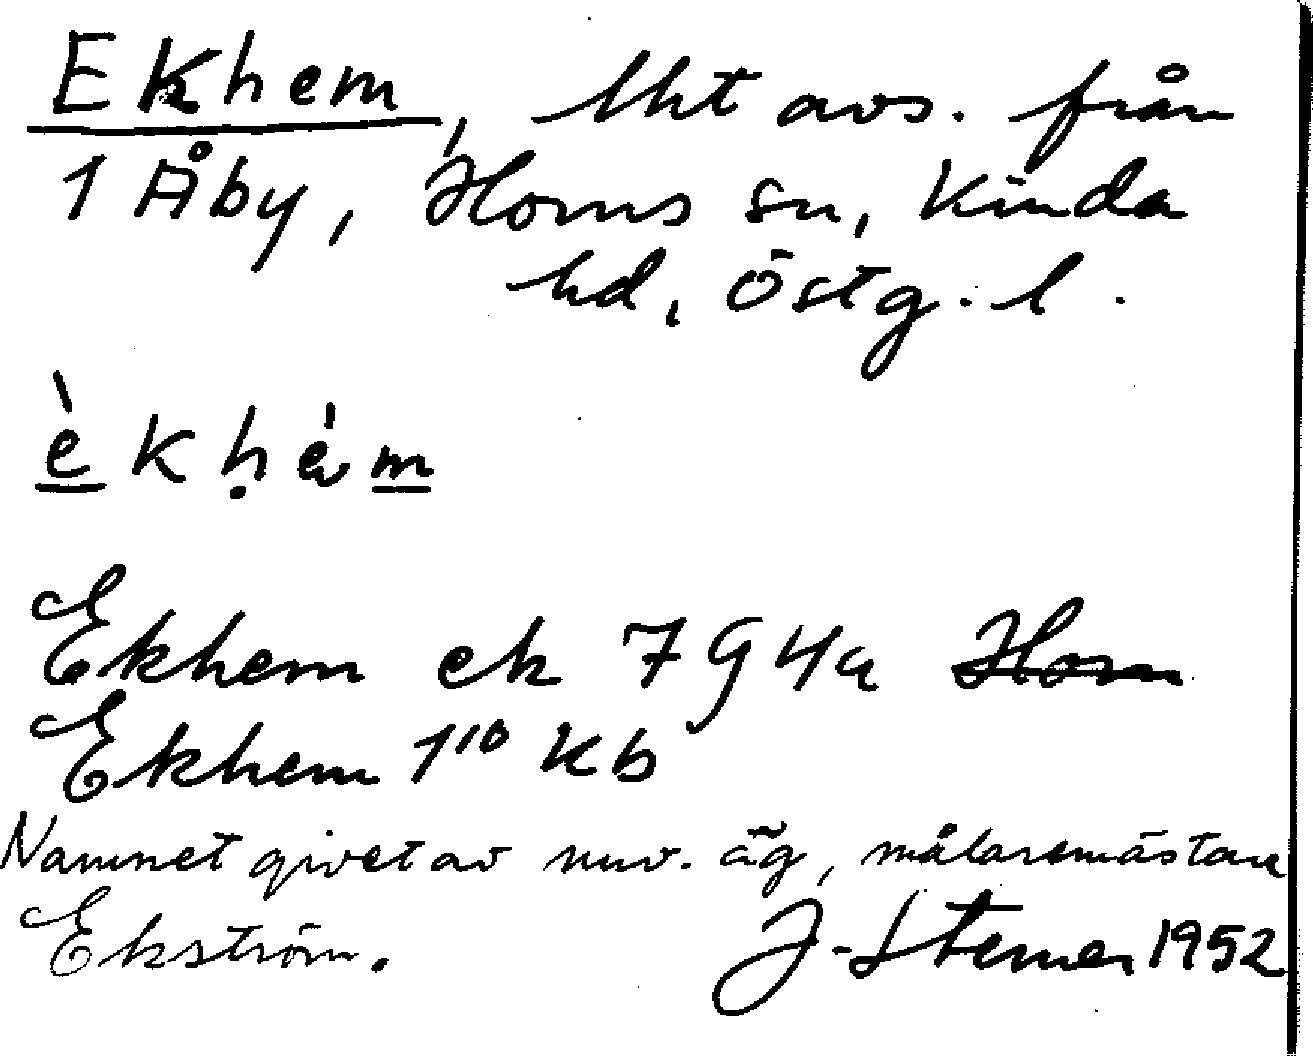 Ekhem, lht avs. från
1 Åby, Horns sn, Kinda
hd, Östg. l.
èkḥäm
Ekhem ek 7 9 4a Horn
Ekhem 1¹⁰ Kb
Namnet givet av nuv. äg, målaremästare
Ekström. J. 1952